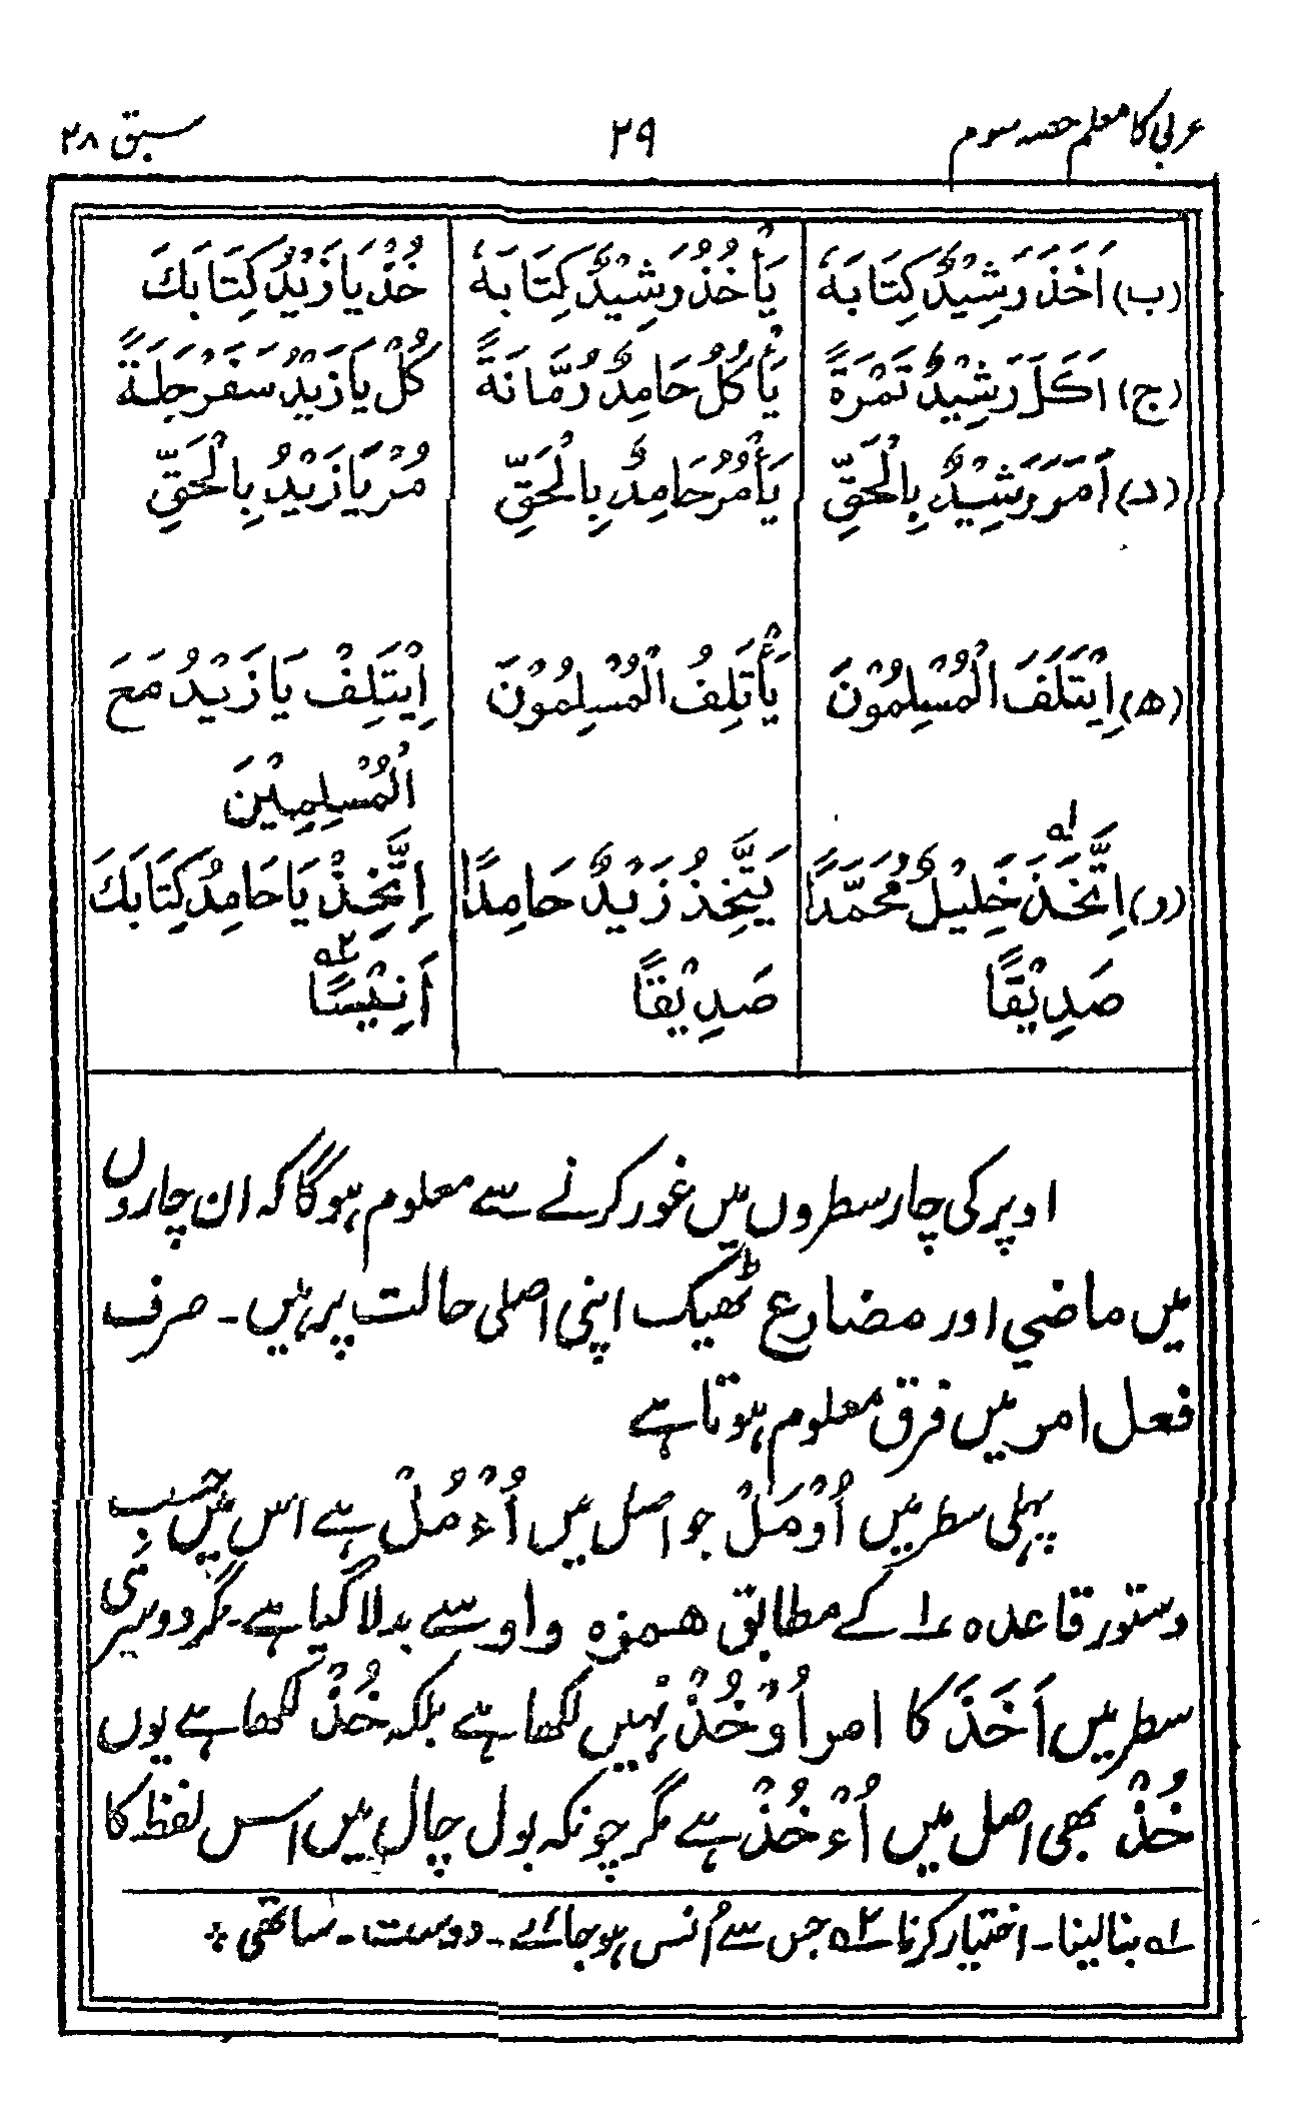 عربی کا معلم حصہ سوم ۲۹ سبق ۲۸
(ب) اَخَذَ رَشِيْدٌ كِتَابَهٗ يَأْخُذُ رَشِيْدٌ كِتَابَهٗ خُذْ يَا زَيْدُ كِتَابَكَ
(ج) اَكَلَ رَشِيْدٌ تَمْرَةً يَأْكُلُ حَامِدٌ رُمَّانَةً كُلْ يَا زَيْدُ سَفَرْجَلَةً
(د) اَمَرَ رَشِيْدٌ بِالْحَقِّ يَأْمُرُ حَامِدٌ بِالْحَقِّ مُرْ يَا زَيْدُ بِالْحَقِّ
(ه) اِيْتَلَفَ الْمُسْلِمُوْنَ يَأْتَلِفُ الْمُسْلِمُوْنَ اِيْتَلِفْ يَا زَيْدُ مَعَ
الْمُسْلِمِيْنَ
(و) اِتَّخَذَ لہ خَلِيْلٌ مُحَمَّدًا يَتَّخِذُ زَيْدٌ حَامِدًا اِتَّخِذْ يَا حَامِدُ كِتَابَكَ
صَدِيْقًا صَدِيْقًا اَنِيْسًا ۲ہ
اوپر کی چار سطروں میں غور کرنے سے معلوم ہوگا کہ ان چاروں
میں ماضی اور مضارع ٹھیک اپنی اصلی حالت پر ہیں۔ صرف
فعل امر میں فرق معلوم ہوتا ہے
پہلی سطر میں اُوْمَلْ جو اصل میں اُءْمُلْ ہے اس میں حسب
دستور قاعدہ ۱ کے مطابق ھمزہ واو سے بدلا گیا ہے۔ مگر دوسری
سطر میں اَخَذَ کا امر اُوْخُذْ نہیں لکھا ہے بلکہ خُذْ لکھا ہے یوں
خُذْ بھی اصل میں اُءْخُذْ ہے مگر چونکہ بول چال میں اس لفظ کا
لہ بنا لینا۔ اختیار کرنا ۲ہ جس سے اُنس ہو جائے۔ دوست۔ ساتھی